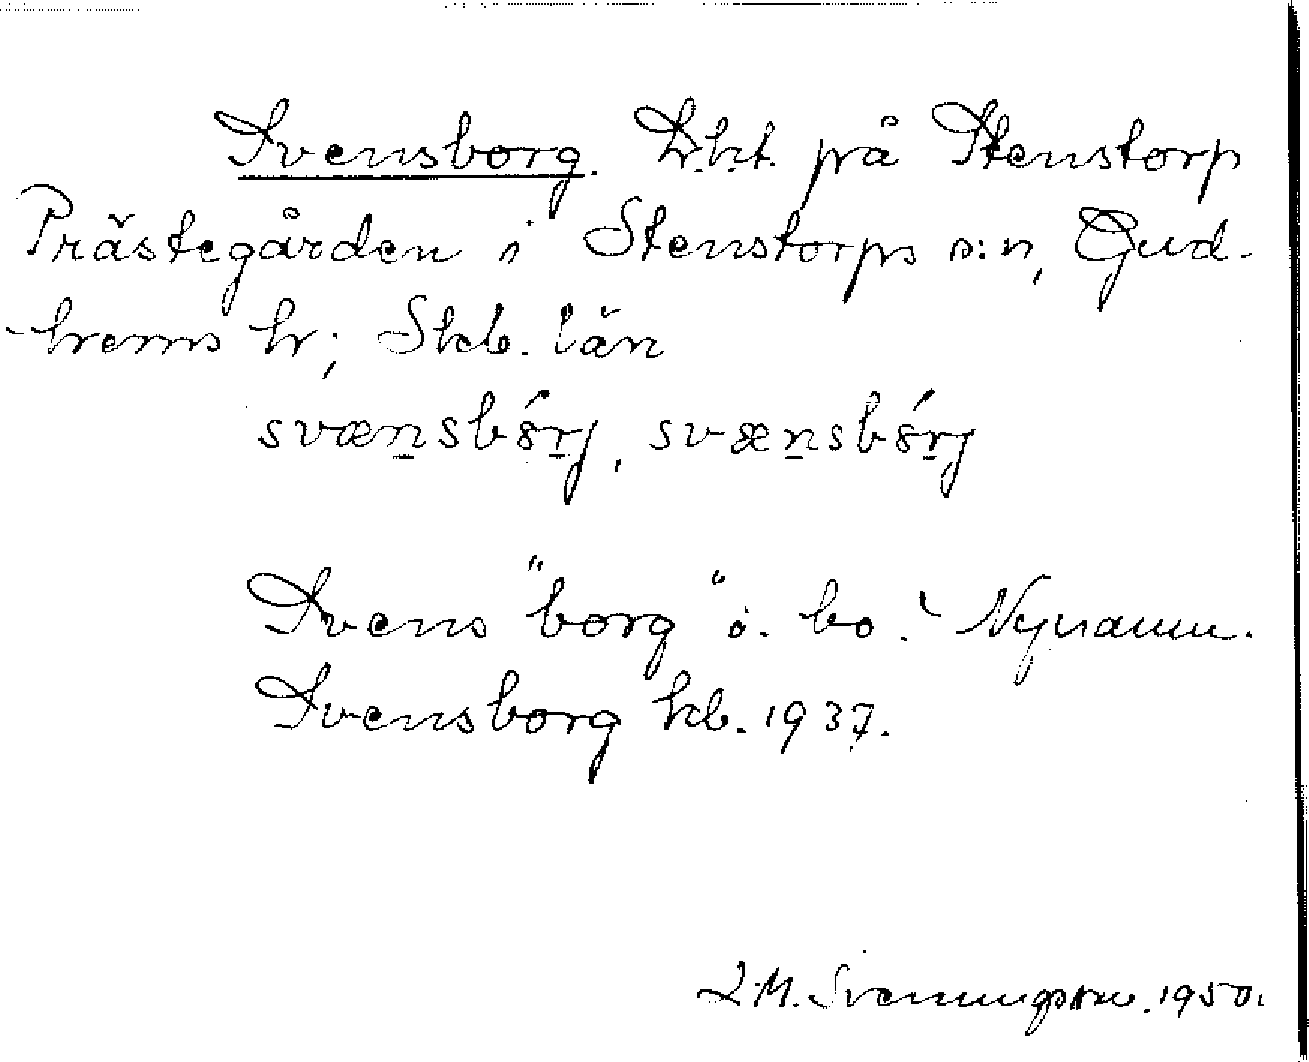 Svensborg. Lht. på Stenstorp
Prästegården i Stenstorps s:n, Gud-
-hems hr; Skb. län
svænsbɤ́rj, svænsbɤ́rj
Svens "borg" o. bo. Nynamn.
Svensborg kb. 1937.
L.M. Svenungsson. 1950.